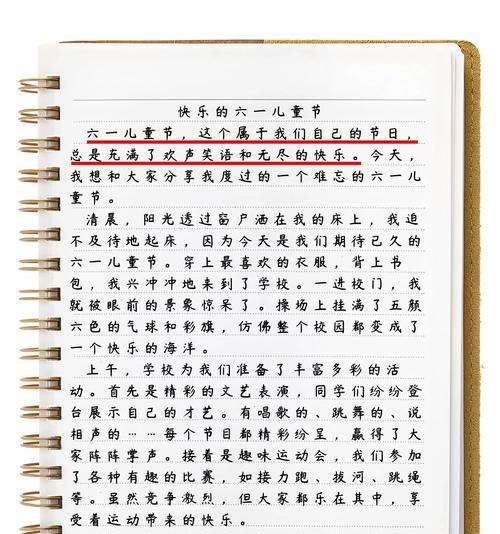 快乐的六一儿童节
六一儿童节，这个属于我们自己的节日，
总是充满了欢声笑语和无尽的快乐。今天，
我想和大家分享我度过的一个难忘的六一儿
童节。
清晨，阳光透过窗户洒在我的床上，我迫
不及待地起床，因为今天是我们期待已久的
六一儿童节。穿上最喜欢的衣服，背上书
包，我兴冲冲地来到了学校。一进校门，我
就被眼前的景象惊呆了。操场上挂满了五颜
六色的气球和彩旗，仿佛整个校园都变成了
一个快乐的海洋。
上午，学校为我们准备了丰富多彩的活
动。首先是精彩的文艺表演，同学们纷纷登
台展示自己的才艺。有唱歌的、跳舞的、说
相声的……每个节目都精彩纷呈，赢得了大
家阵阵掌声。接着是趣味运动会，我们参加
了各种有趣的比赛，如接力跑、拔河、跳绳
等。虽然竞争激烈，但大家都乐在其中，享
受着运动带来的快乐。